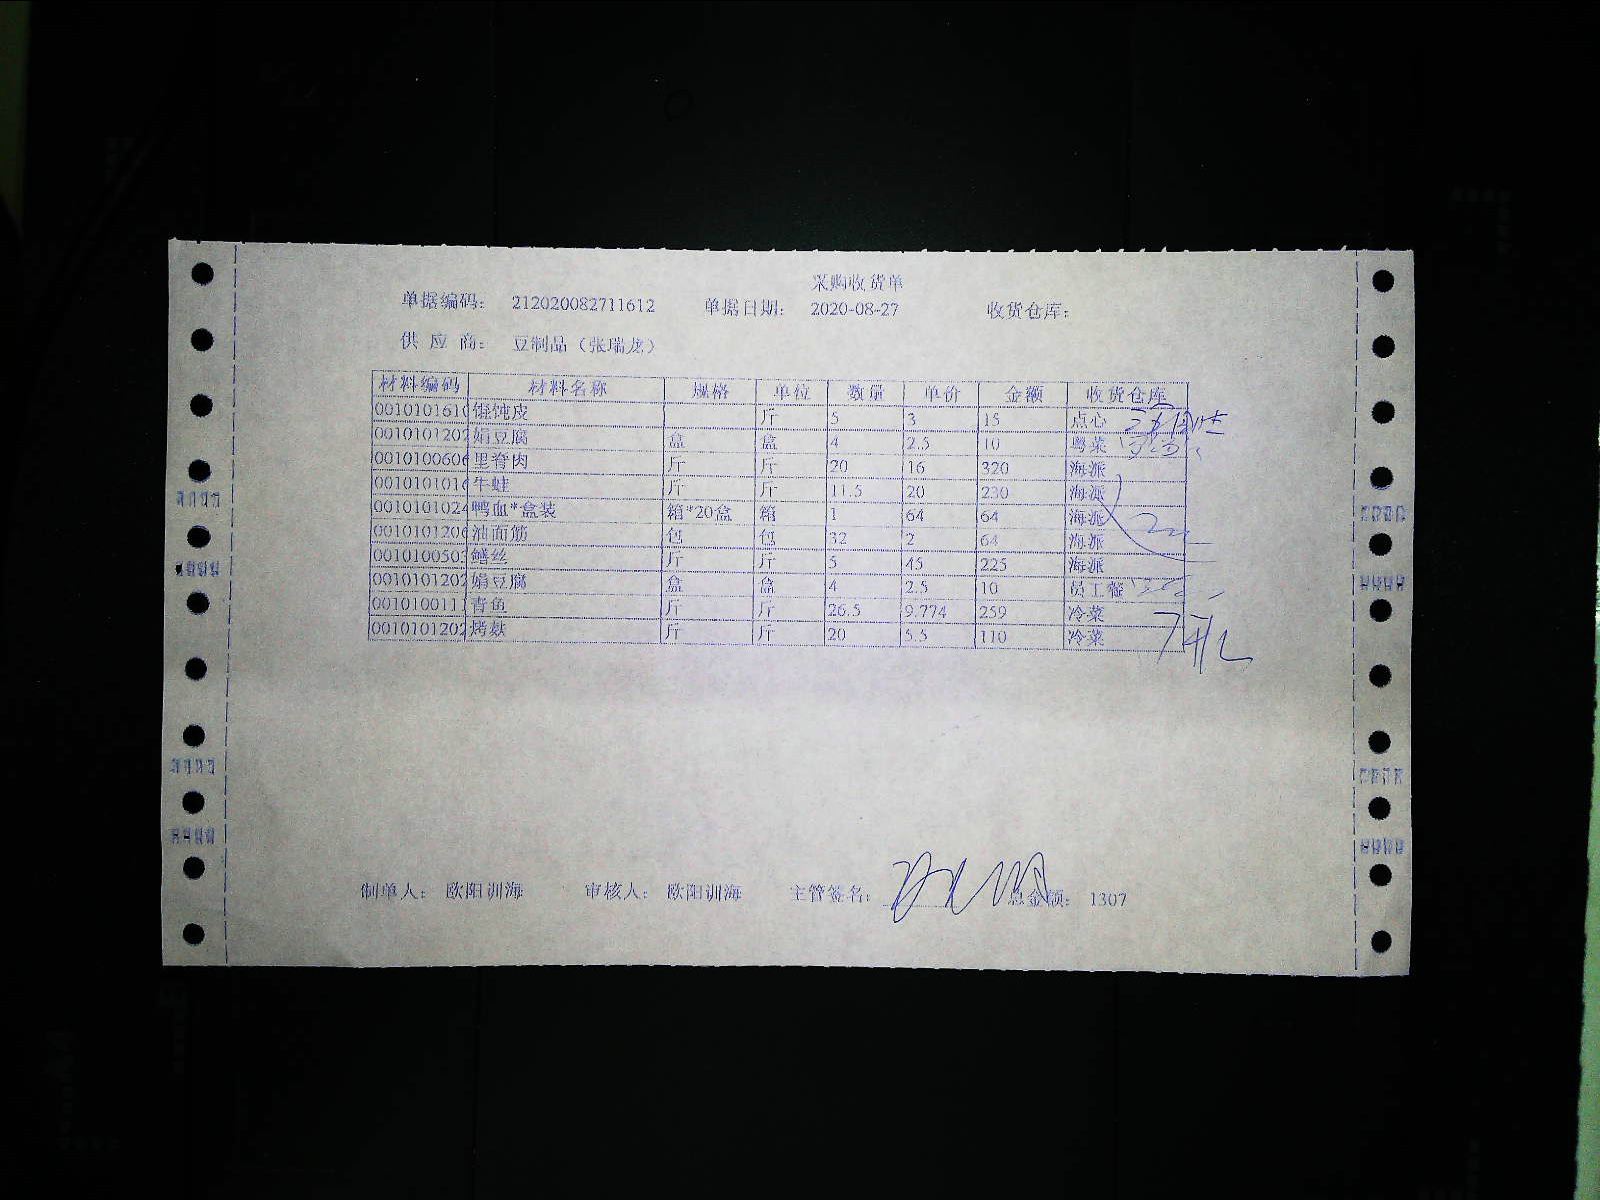 采购收货单
单据编码： 212020082711612 单据日期： 2020-08-27 收货仓库：
供 应 商： 豆制品（张瑞龙）
材料编码 材料名称 规格 单位 数量 单价 金额 收货仓库
001010161 馄饨皮 斤 5 3 15 点心
001010120 娟豆腐 盒 盒 4 2.5 10 粤菜
001010060 里脊肉 斤 斤 20 16 320 海派
001010101 牛蛙 斤 斤 11.5 20 230 海派
001010102 鸭血*盒装 箱*20盒 箱 1 64 64 海派
001010120 油面筋 包 包 32 2 64 海派
001010050 鳝丝 斤 斤 5 45 225 海派
001010120 娟豆腐 盒 盒 4 2.5 10 员工餐
001010011 青鱼 斤 斤 26.5 9.774 259 冷菜
001010120 烤麸 斤 斤 20 5.5 110 冷菜
制单人： 欧阳训海 审核人： 欧阳训海 主管签名： 总金额： 1307